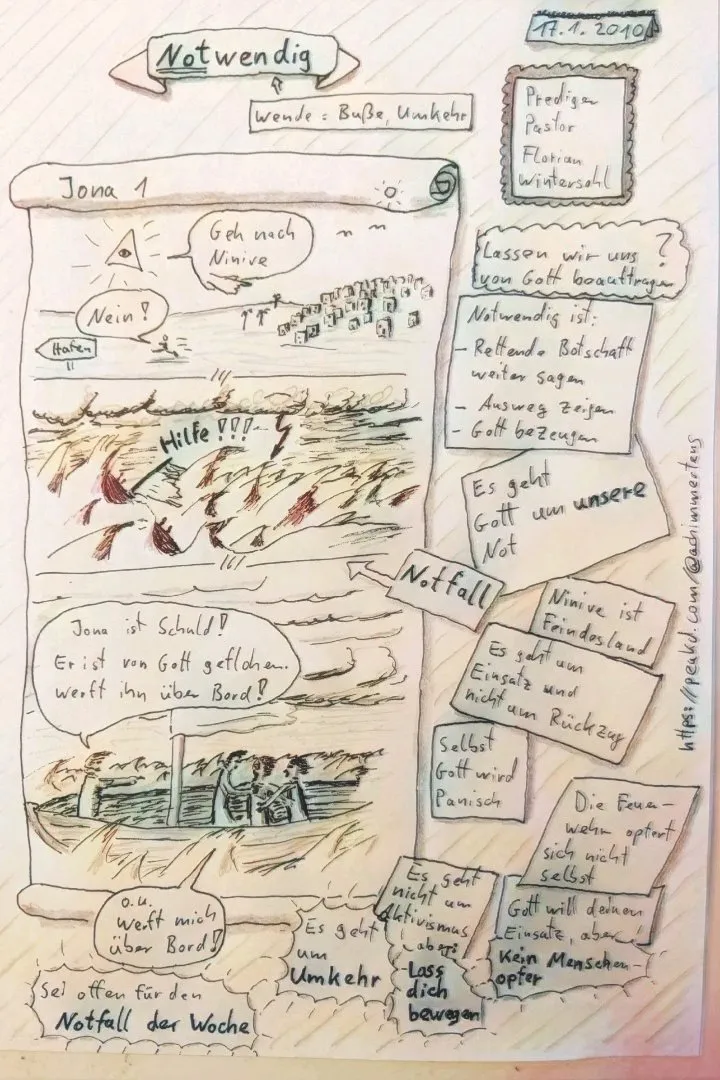 17.1.2010
Notwendig
wende = Buße, Umkehr
Prediger
Pastor
Florian
Wintersohl
Jona 1
Geh nach
Ninive
Nein!
Hafen
Hilfe!!!
Jona ist Schuld!
Er ist von Gott geflohen.
Werft ihn über Bord!
o.u.
Werft mich
über Bord!
Lassen wir uns
von Gott beauftragen?
Notwendig ist:
- Rettende Botschaft
weiter sagen
- Ausweg zeigen
- Gott bezeugen
Es geht
Gott um unsere
Not
Notfall
Ninive ist
Feindesland
Es geht um
Einsatz und
nicht um Rückzug
Selbst
Gott wird
Panisch
Die Feuer-
wehr opfert
sich nicht
selbst
Gott will deinen
Einsatz, aber
Kein Menschen-
opfer
Es geht
nicht um
Aktivismus
aber:
Lass
dich
bewegen
Es geht
um
Umkehr
Sei offen für den
Notfall der Woche
https://peakd.com/@achimmertens